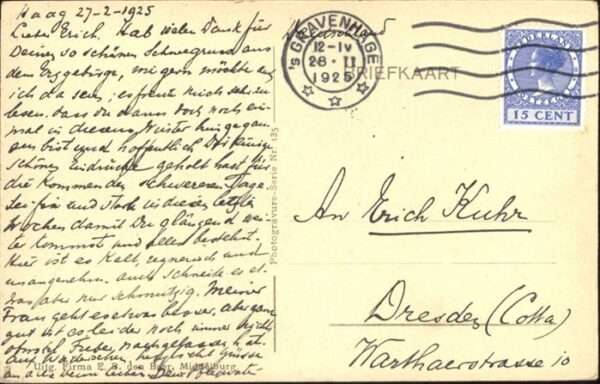 Haag 27-2-1925
Lieber Erich. Hab vielen Dank für
Deinen so schönen Schneegruss aus
dem Erzgebirge, wie gern möchte
ich da sein, es freut mich sehr zu
lesen, dass du dann doch noch ein-
mal in diesem Winter hingegan-
gen bist und hoffentlich
schöne Eindrücke geholt hast für
die kommenden schweren Tage.
Sei und stark in dieser letzten
Wochen damit Du glänzend
kommst und alles bestehst.
Hier ist es kalt, regnerisch und
unangenehm. auch schneite es et-
was aber nur schmutzig. Meiner
Frau geht es etwas besser, aber ganz
gut ist es leider noch immer nicht
Fieber, nachgelassen hat.
herzlichst Grüsse
Dein
Uitg. Firma F. B. den Boer, Middelburg
Photogravure-Serie Nr. 135
's GRAVENHAGE
12-IV
28 · II
1925
BRIEFKAART
NEDERLAND
15 CENT
An Erich Kuhr
Dresden (Cotta)
Warthaerstrasse 10